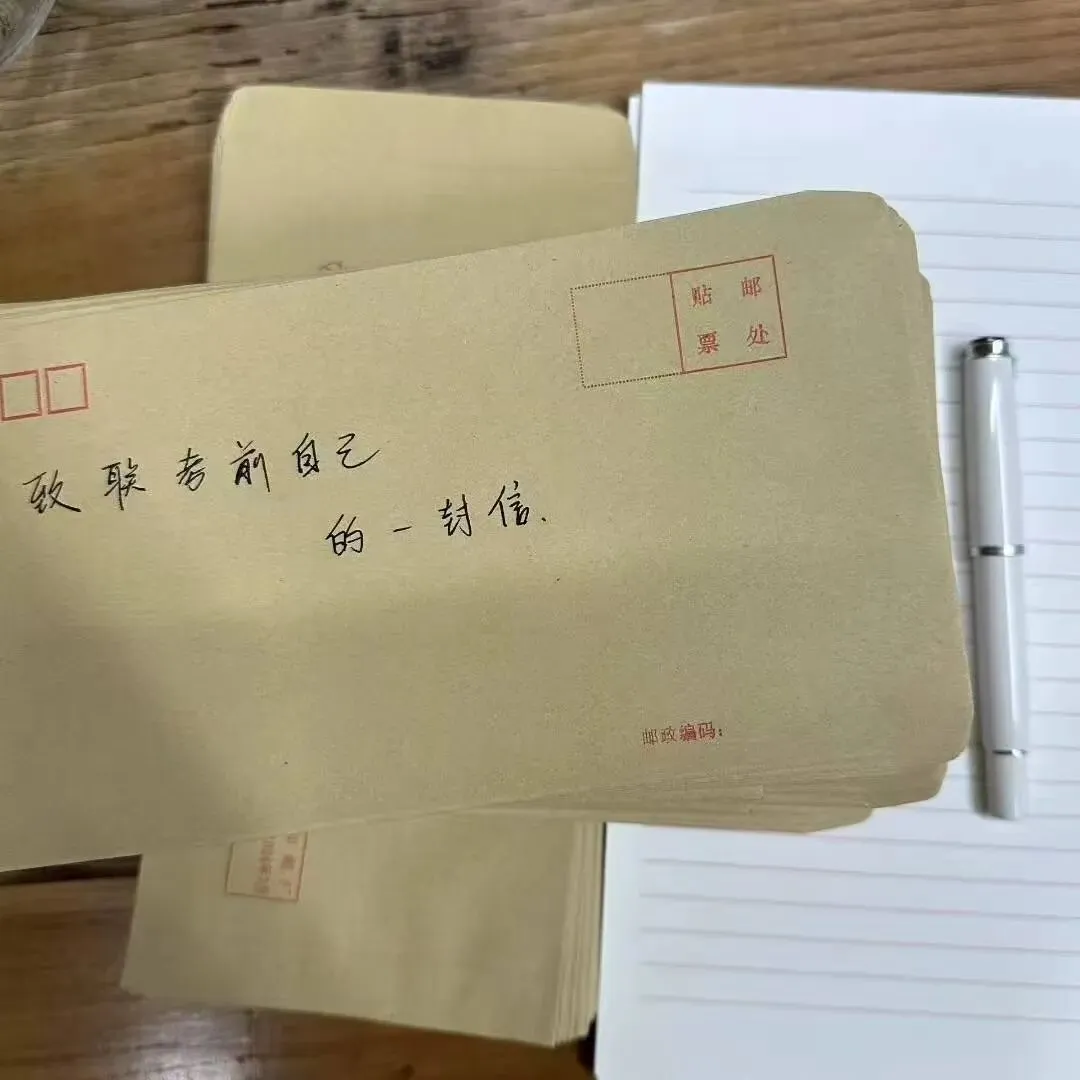 贴邮
票处
致联考前自己
的一封信.
邮政编码: